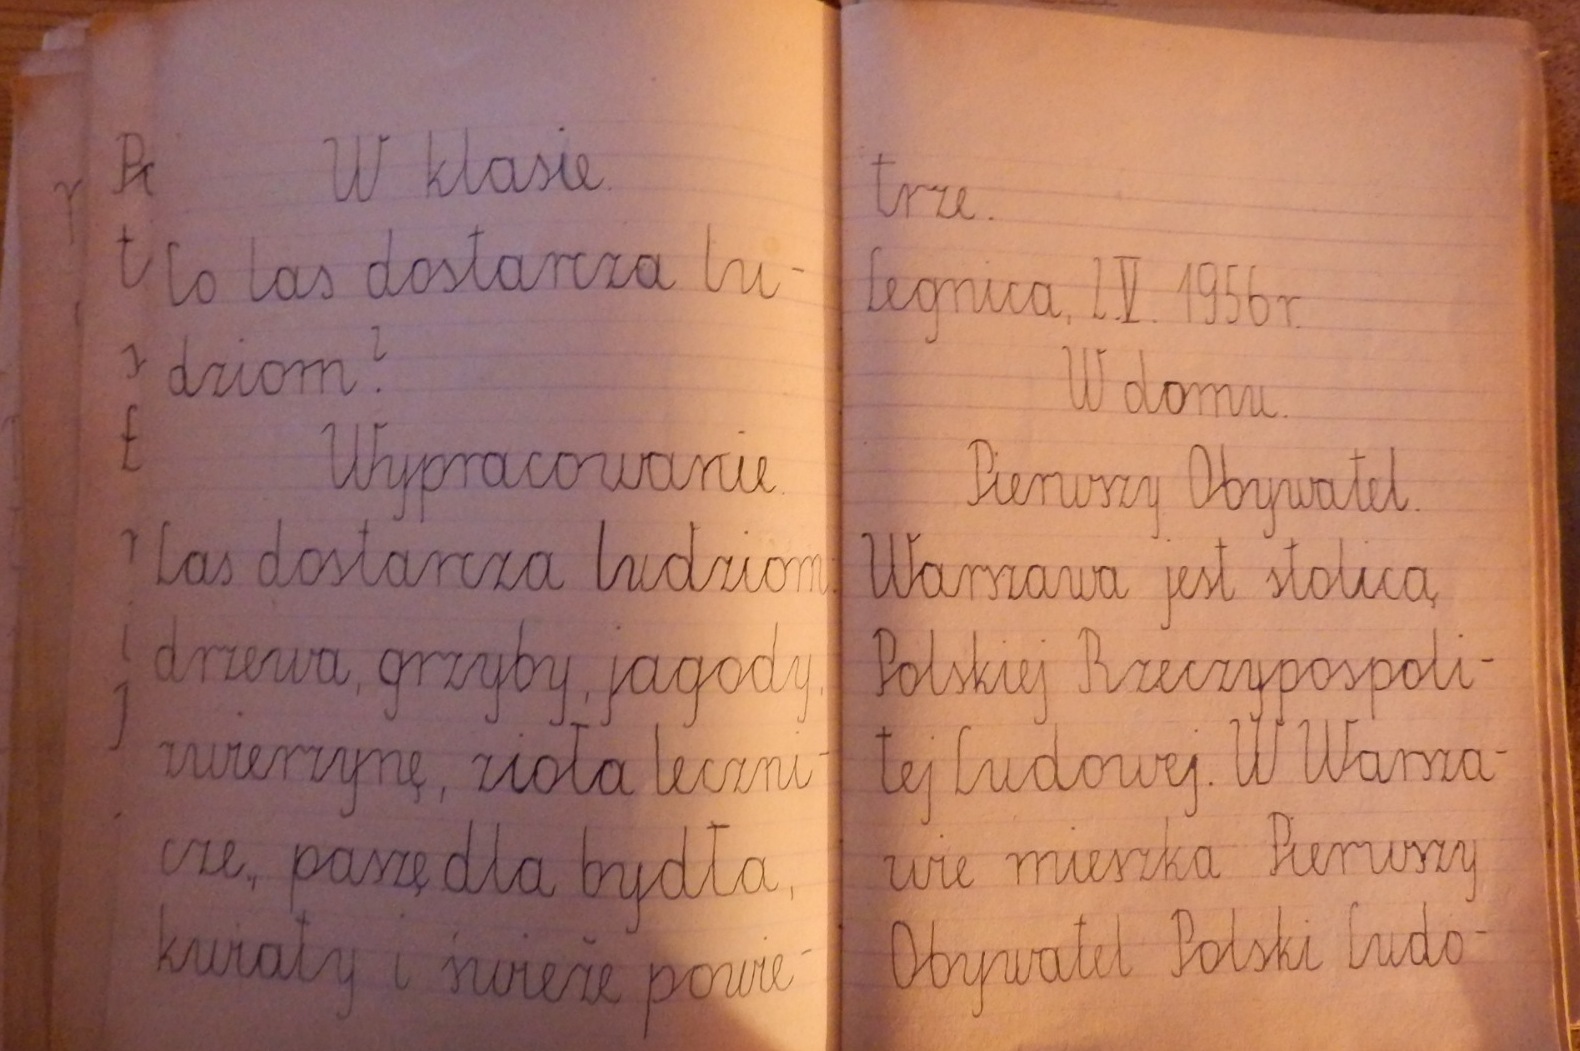 W klasie.
Co las dostarcza lu-
dziom?
Wypracowanie.
Las dostarcza ludziom:
drzewa, grzyby, jagody,
zwierzynę, zioła leczni-
cze, paszę dla bydła,
kwiaty i świeże powie-
trze.
Legnica, 2.V. 1956r.
W domu.
Pierwszy Obywatel.
Warszawa jest stolicą
Polskiej Rzeczypospoli-
tej Ludowej. W Warsza-
wie mieszka Pierwszy
Obywatel Polski Ludo-